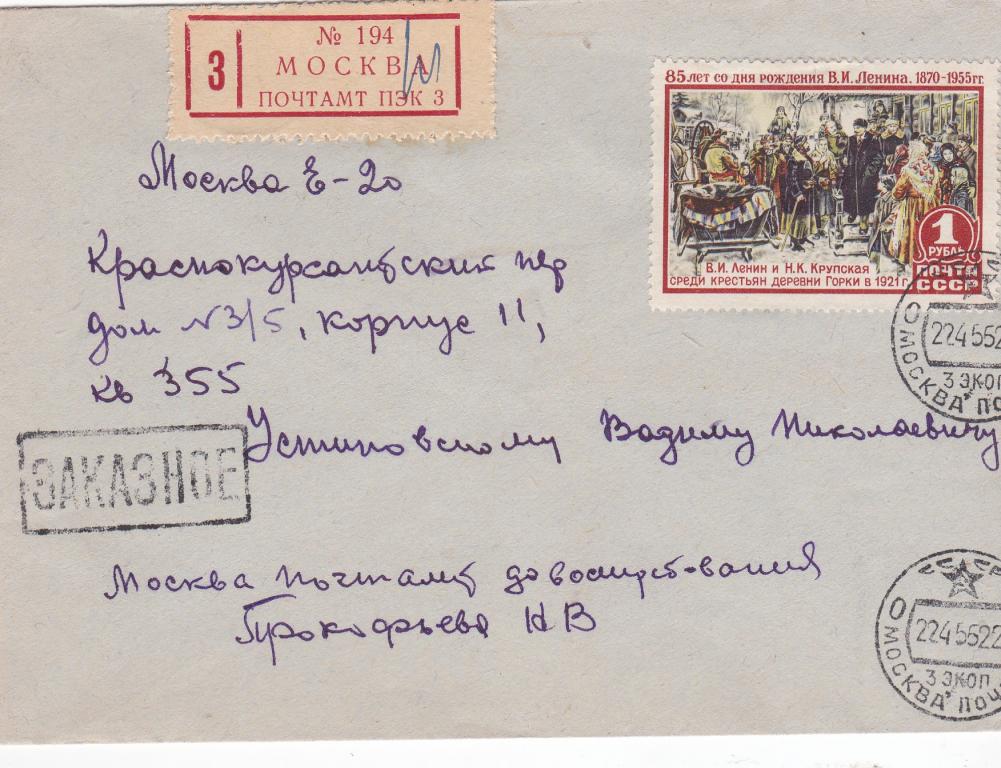 № 194
3
МОСКВА
ПОЧТАМТ ПЭК 3
85 лет со дня рождения В.И. Ленина. 1870-1955 гг.
1
РУБЛЬ
ПОЧТА
СССР
В.И. Ленин и Н.К. Крупская
среди крестьян деревни Горки в 1921 г.
Москва Е-20
Краснокурсантский пер
дом №3/5, корпус 11,
кв 355
Устиновскому Вадиму Николаевичу
ЗАКАЗНОЕ
Москва Почтамт до востребования
Прокофьева Н В
224552
МОСКВА
3 ЭКСП
СССР
2245522
3 ЭКСП
МОСКВА